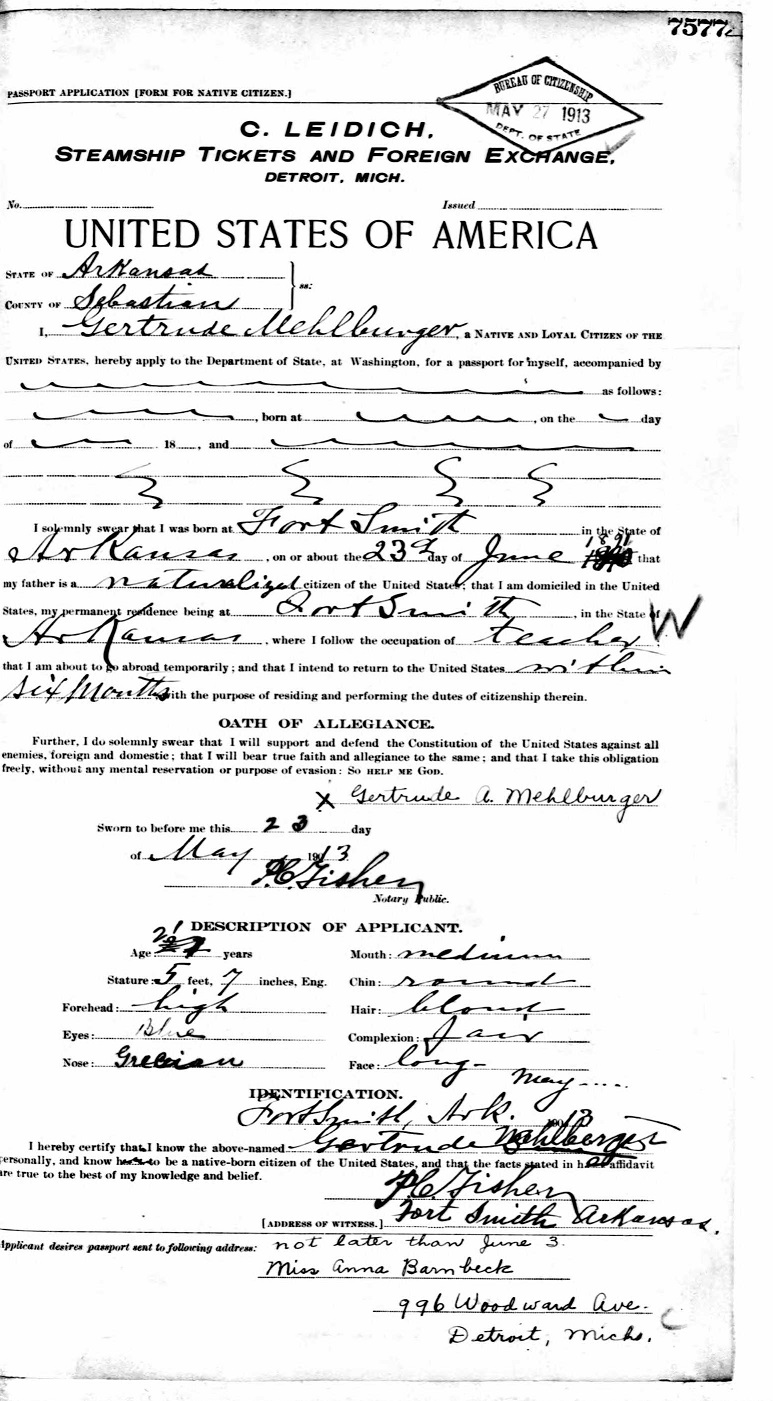 7577
PASSPORT APPLICATION [FORM FOR NATIVE CITIZEN.]
BUREAU OF CITIZENSHIP
MAY 27 1913
DEPT. OF STATE
C. LEIDICH,
STEAMSHIP TICKETS AND FOREIGN EXCHANGE,
DETROIT, MICH.
No. Issued
UNITED STATES OF AMERICA
STATE OF Arkansas
ss:
COUNTY OF Sebastian
I, Gertrude Mehlburger, a NATIVE AND LOYAL CITIZEN OF THE
UNITED STATES, hereby apply to the Department of State, at Washington, for a passport for myself, accompanied by
as follows:
, born at , on the day
of 18 , and
I solemnly swear that I was born at Fort Smith in the State of
Arkansas, on or about the 23d day of June 1891 that
my father is a naturalized citizen of the United States; that I am domiciled in the United
States, my permanent residence being at Fort Smith, in the State of
Arkansas, where I follow the occupation of teacher; W
that I am about to go abroad temporarily; and that I intend to return to the United States within
six Months with the purpose of residing and performing the duties of citizenship therein.
OATH OF ALLEGIANCE.
Further, I do solemnly swear that I will support and defend the Constitution of the United States against all
enemies, foreign and domestic; that I will bear true faith and allegiance to the same; and that I take this obligation
freely, without any mental reservation or purpose of evasion: SO HELP ME GOD.
X Gertrude A. Mehlburger
Sworn to before me this 23 day
of May 1913
P.C. Fisher
Notary Public.
DESCRIPTION OF APPLICANT.
Age 21 years Mouth: medium
Stature: 5 feet, 7 inches, Eng. Chin: round
Forehead: high Hair: blond
Eyes: Blue Complexion: fair
Nose: Grecian Face: long
May
IDENTIFICATION.
Fort Smith, Ark. 1913
I hereby certify that I know the above-named Gertrude Mehlberger
personally, and know her to be a native-born citizen of the United States, and that the facts stated in her affidavit
are true to the best of my knowledge and belief.
P.C. Fisher
Fort Smith Arkansas.
[ADDRESS OF WITNESS.]
Applicant desires passport sent to following address: not later than June 3
Miss Anna Barnbeck
996 Woodward Ave.
Detroit, Mich.